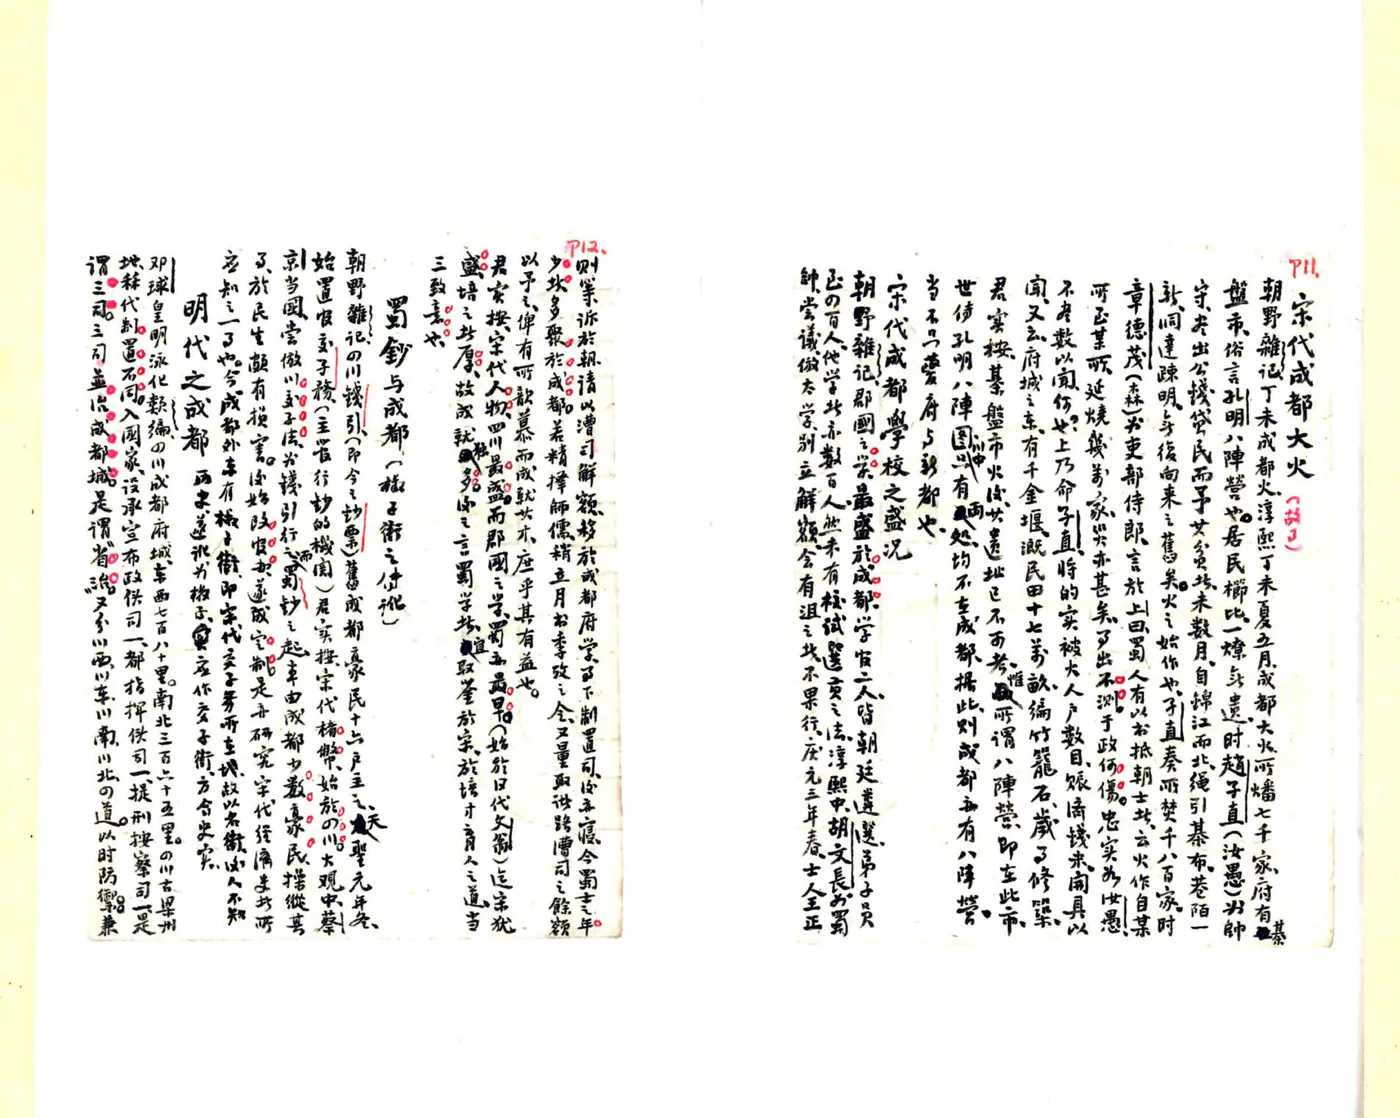 P11.
宋代成都大火(故事)
朝野雜记丁未成都火淳熙丁未夏五月成都大火所燔七千家府有棊
盤市俗言孔明八陣營也居民櫛比一燎無遺时趙子直(汝愚)为帥
守尽出公錢貸民而予其貧者未数月自錦江而北绳引棊布巷陌一
新洞達疎明無復向来之舊矣火之始作也子直奏所焚千八百家时
章德茂(森)为吏部侍郎言於上曰蜀人有以书抵朝士者云火作自某
所至某所延燒幾万家災亦甚矣而出不测于政何傷忠实如汝愚
不尽数以聞何也上乃命子直将的实被火人户数目赈济钱米開具以
聞又云府城之东有千金堰溉民田十七萬畝编竹籠石歲事修築
君实按棊盤市火後其遺址已不可考惟所谓八陣營即在此市
世传孔明八陣图川中有两处均不在成都据此则成都亦有八阵營
当不只夔府与新都也
宋代成都學校之盛况
朝野雜记郡國之学最盛於成都学官二人皆朝廷遴選弟子員
至四百人他学者亦数百人然未有校試選貢之法淳熙中胡文長为蜀
帥尝议倣太学别立解額会有沮之者不果行庆元三年春士人全正
P12.
则等诉於朝請以漕司解額移於成都府学事下制置司後亦寢今蜀士之年
少者多聚於成都若精擇師儒稍立月书季攷之令又量取诸路漕司之餘額
以予之俾有所歆慕而成就其术庶乎其有益也
君实按宋代人物四川最盛而郡國之学蜀亦最早(始於汉代文翁)迄宋犹
盛培之者厚故成就独多後之言蜀学者宜取鉴於宋於培才育人之道当
三致意也
蜀鈔与成都(槐子街之付讹)
朝野雜记四川錢引(即今之鈔票)舊成都豪民十六户主之天聖元年冬
始置官交子務(主管行鈔的機関)君实按宋代楮幣始於四川大观中蔡
京当國尝倣川交子法为錢引行之而蜀鈔之起率由成都少数豪民操縱其
事於民生颇有损害後始改官办遂成定制是亦研究宋代经濟史者所
应知之一事也今成都外东有槐子街即宋代交子务所在地故以名街後人不知
明代之成都 而末遂讹为槐子实应作交子街方合史实
邓球皇明泳化類编四川成都府城东西七百八十里南北三百六十五里四川古梁州
地歷代制置不同入國家设承宣布政使司一都指揮使司一提刑按察司一是
谓三司三司並治成都城是谓"省治"又分川西川东川南川北四道以时防禦兼